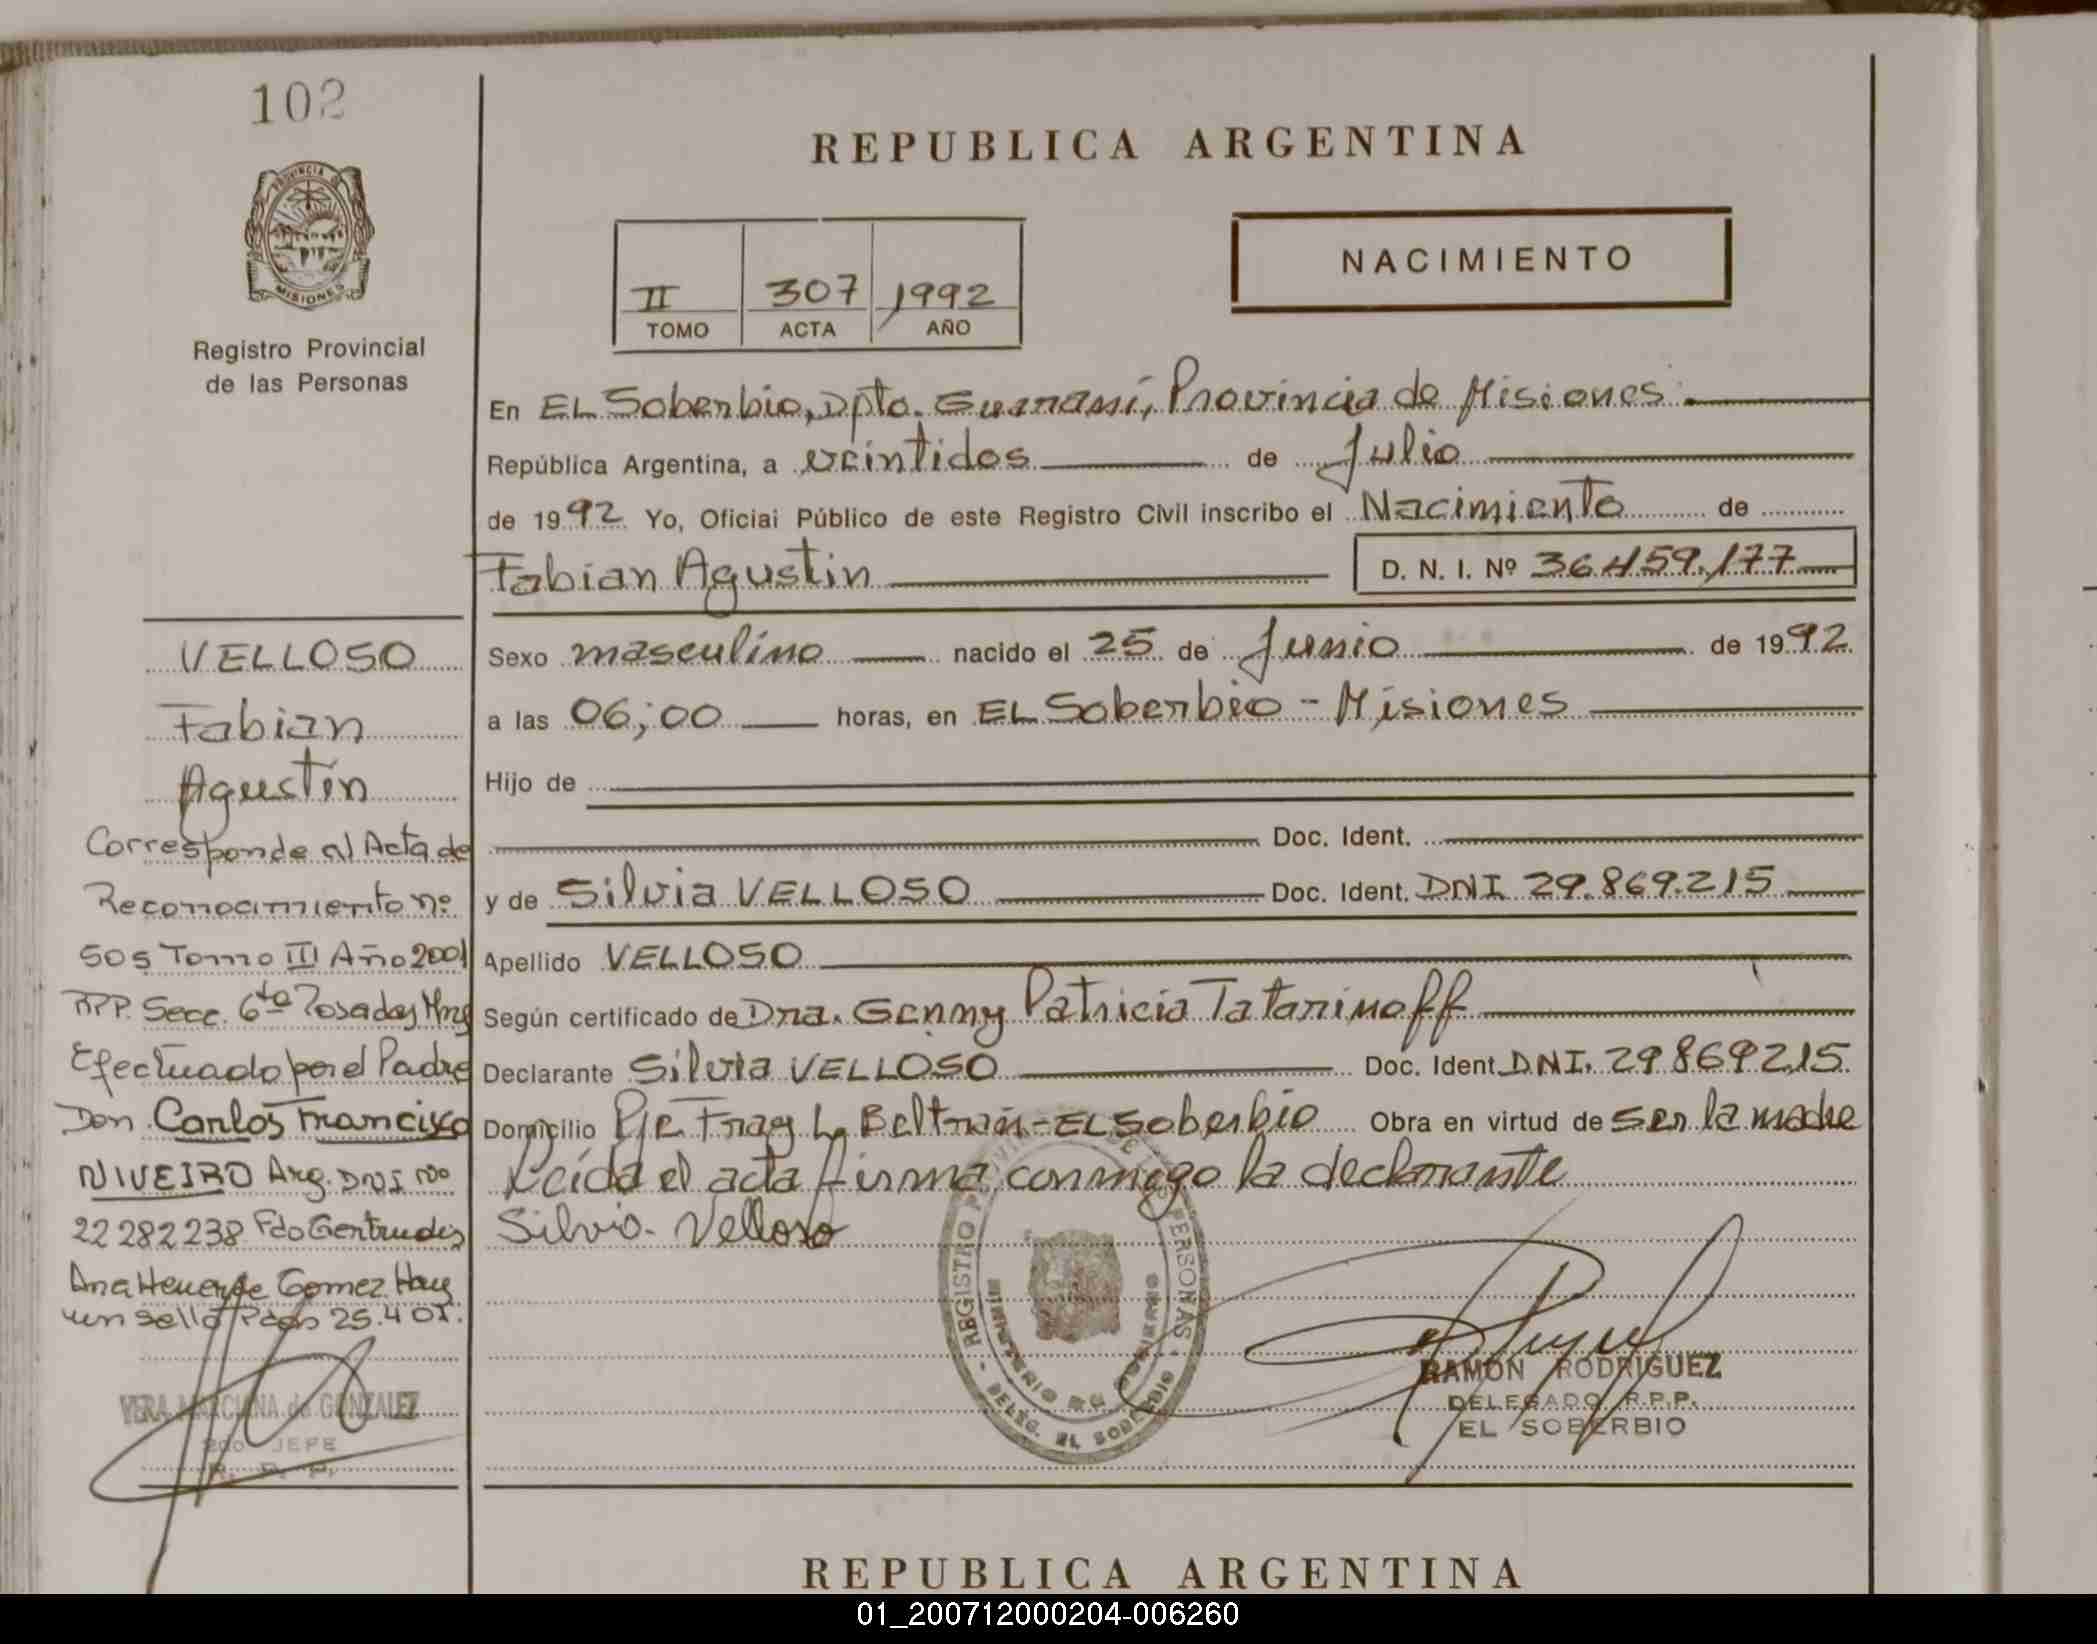 102
PROVINCIA DE
MISIONES
Registro Provincial
de las Personas
VELLOSO
Fabian
Agustin
Corresponde al Acta de
Reconocimiento nº
505 Tomo III Año 2001
RPP. Secc. 6ta Posadas Mnes
Efectuado por el Padre
Don Carlos Francisco
NIVEIRO Arg. DNI Nº
22 282 238 Fdo Gertrudis
Ana Gomez Hay
un sello Pdas 25.4 01.
VERA MARCIANA de GONZALEZ
2do JEFE
R. P. P.
REPUBLICA ARGENTINA
II 307 1992
TOMO ACTA AÑO
NACIMIENTO
En EL Soberbio, Dpto. Guaraní, Provincia de Misiones.
República Argentina, a veintidos de Julio
de 1992 Yo, Oficial Público de este Registro Civil inscribo el Nacimiento de
Fabian Agustin D. N. I. Nº 36.459.177
Sexo masculino nacido el 25 de Junio de 1992.
a las 06;00 horas, en EL Soberbio - Misiones
Hijo de
Doc. Ident.
y de Silvia VELLOSO Doc. Ident. DNI 29.869.215
Apellido VELLOSO
Según certificado de Dra. Genny Patricia Tatarinoff
Declarante Silvia VELLOSO Doc. Ident. DNI. 29.869.215.
Domicilio Pje Fray L. Beltran - EL Soberbio Obra en virtud de ser la madre
Leida el acta firma conmigo la declarante
Silvia Velloso
REGISTRO PROVINCIAL DE LAS PERSONAS
MINISTERIO DE GOBIERNO
DELEG. EL SOBERBIO
RAMON RODRIGUEZ
DELEGADO R.P.P.
EL SOBERBIO
REPUBLICA ARGENTINA
01_200712000204-006260